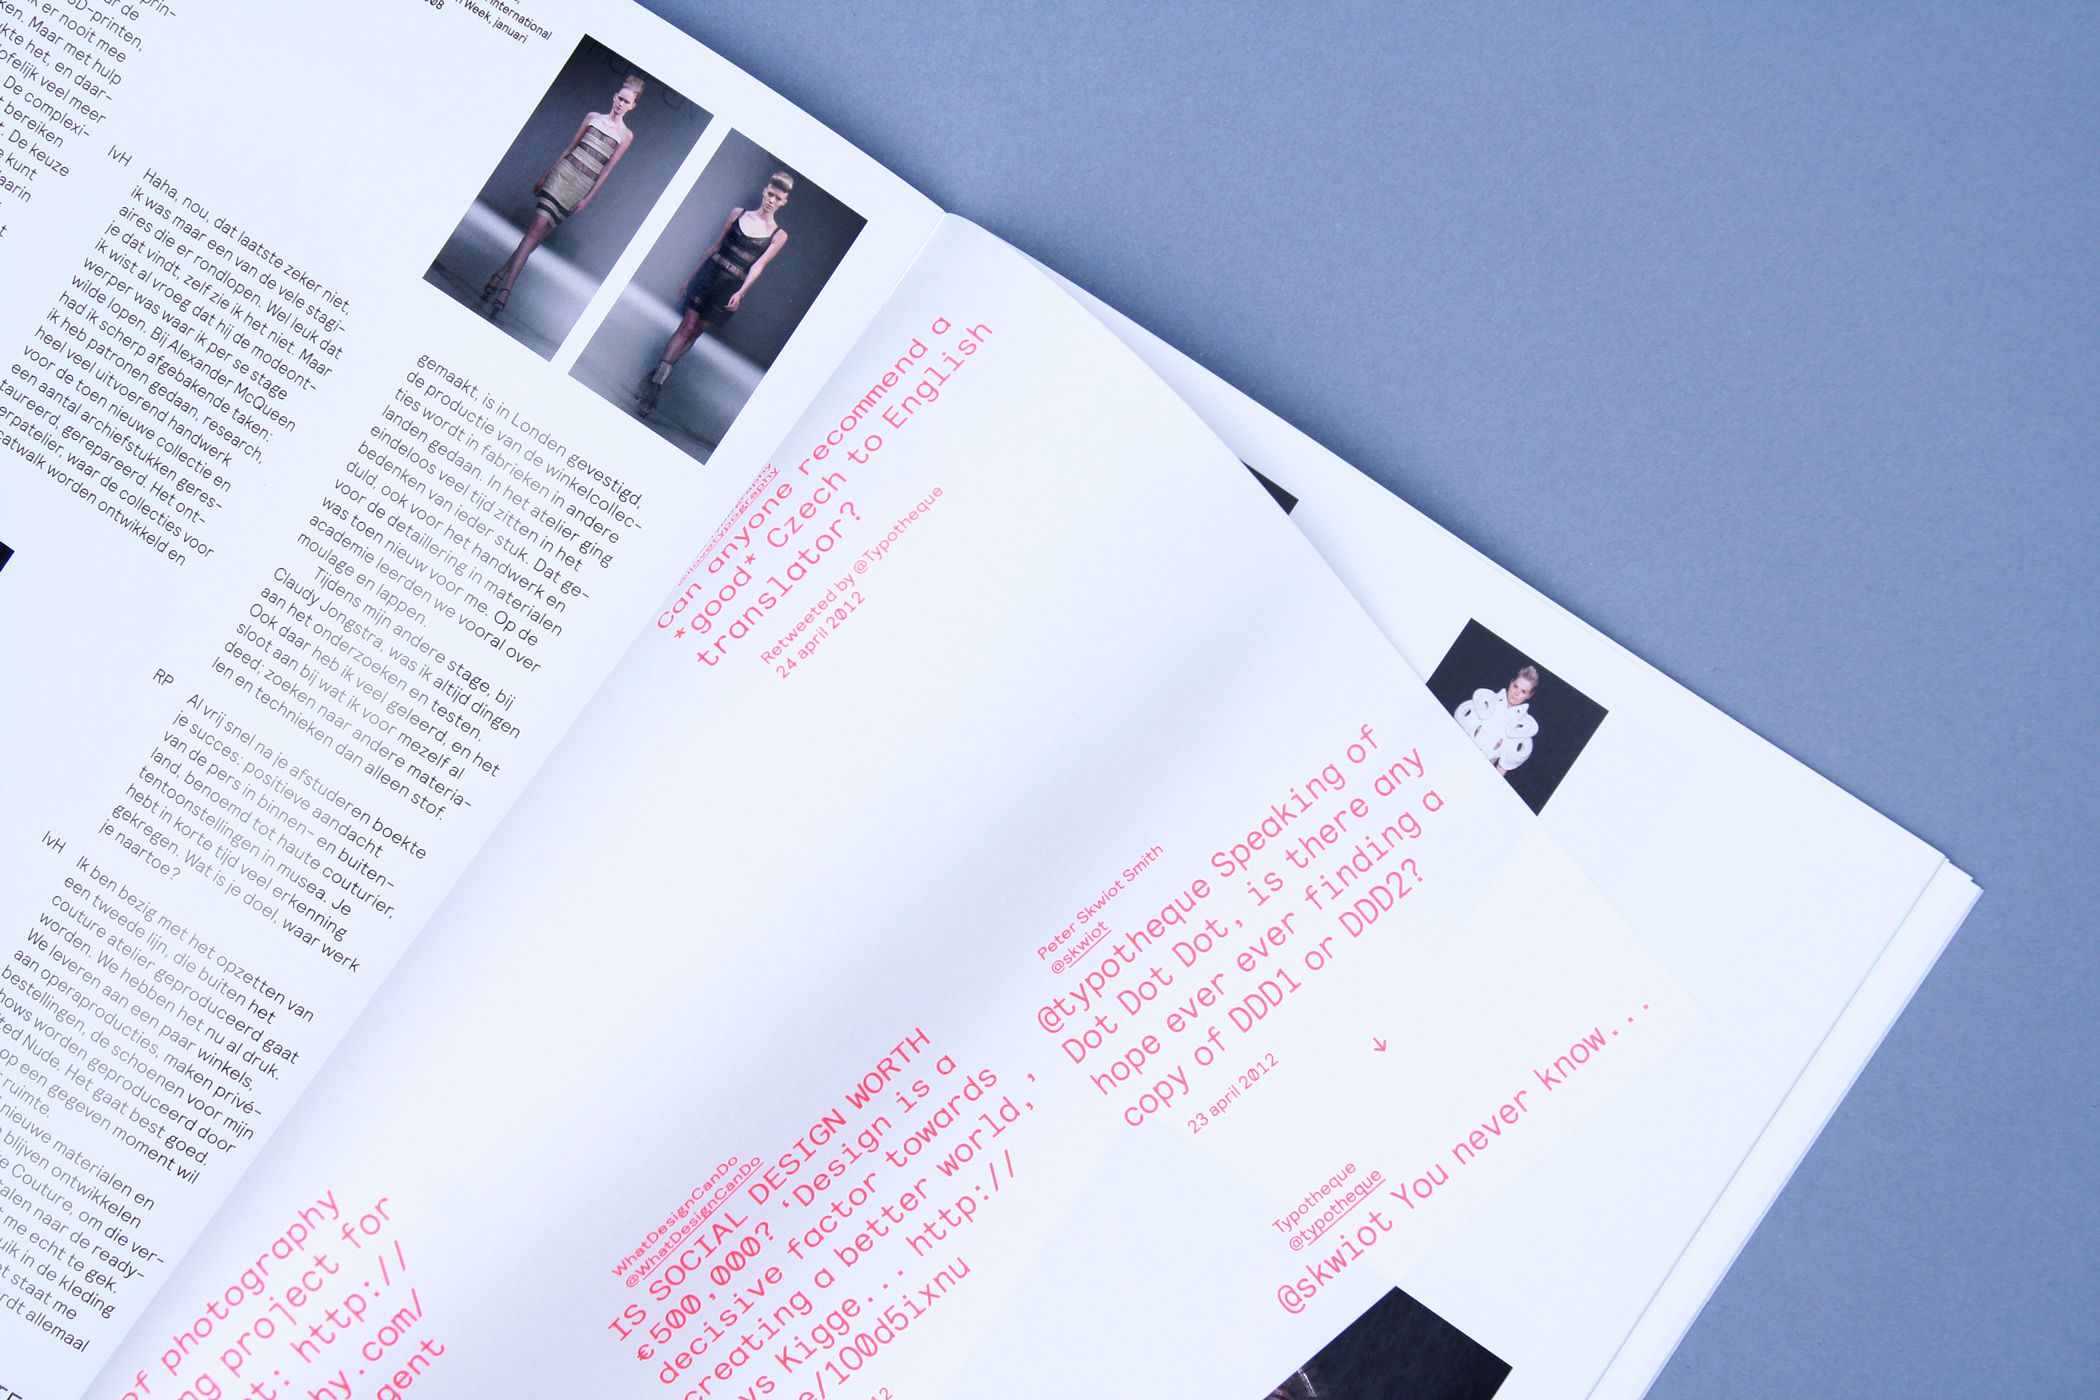 International
Week, januari
3D-printen,
er nooit mee
ken. Maar met hulp
kte het, en daar-
ofelijk veel meer
De complexi-
t bereiken
t. De keuze
kunt
daarin
IvH
Haha, nou, dat laatste zeker niet,
ik was maar een van de vele stagi-
aires die er rondlopen. Wel leuk dat
je dat vindt, zelf zie ik het niet. Maar
ik wist al vroeg dat hij de modeont-
werper was waar ik per se stage
wilde lopen. Bij Alexander McQueen
had ik scherp afgebakende taken:
ik heb patronen gedaan, research,
heel veel uitvoerend handwerk
voor de toen nieuwe collectie en
een aantal archiefstukken geres-
taureerd, gerepareerd. Het ont-
werpatelier, waar de collecties voor
catwalk worden ontwikkeld en
gemaakt, is in Londen gevestigd,
de productie van de winkelcollec-
ties wordt in fabrieken in andere
landen gedaan. In het atelier ging
eindeloos veel tijd zitten in het
bedenken van ieder stuk. Dat ge-
duld, ook voor het handwerk en
voor de detaillering in materialen
was toen nieuw voor me. Op de
academie leerden we vooral over
moulage en lappen.
Tijdens mijn andere stage, bij
Claudy Jongstra, was ik altijd dingen
aan het onderzoeken en testen.
Ook daar heb ik veel geleerd, en het
sloot aan bij wat ik voor mezelf al
deed; zoeken naar andere materia-
len en technieken dan alleen stof.
RP
Al vrij snel na je afstuderen boekte
je succes: positieve aandacht
van de pers in binnen- en buiten-
land, benoemd tot haute couturier,
tentoonstellingen in musea. Je
hebt in korte tijd veel erkenning
gekregen. Wat is je doel, waar werk
je naartoe?
IvH
Ik ben bezig met het opzetten van
een tweede lijn, die buiten het
couture atelier geproduceerd gaat
worden. We hebben het nu al druk.
We leveren aan een paar winkels,
aan operaproducties, maken privé-
bestellingen, de schoenen voor mijn
shows worden geproduceerd door
United Nude. Het gaat best goed.
op een gegeven moment wil
ruimte.
nieuwe materialen en
blijven ontwikkelen
Couture, om die ver-
talen naar de ready-
me echt te gek.
uik in de kleding
staat me
rdt allemaal
Can anyone recommend a
*good* Czech to English
translator?
Retweeted by @Typotheque
24 april 2012
Peter Skwiot Smith
@skwiot
@typotheque Speaking of
Dot Dot Dot, is there any
hope ever ever finding a
copy of DDD1 or DDD2?
23 april 2012
↓
Typotheque
@typotheque
@skwiot You never know...
WhatDesignCanDo
@WhatDesignCanDo
IS SOCIAL DESIGN WORTH
€500,000? 'Design is a
decisive factor towards
creating a better world, ,
ys Kigge... http://
e/10Od5ixnu
of photography
ng project for
t: http://
hy.com/
gent